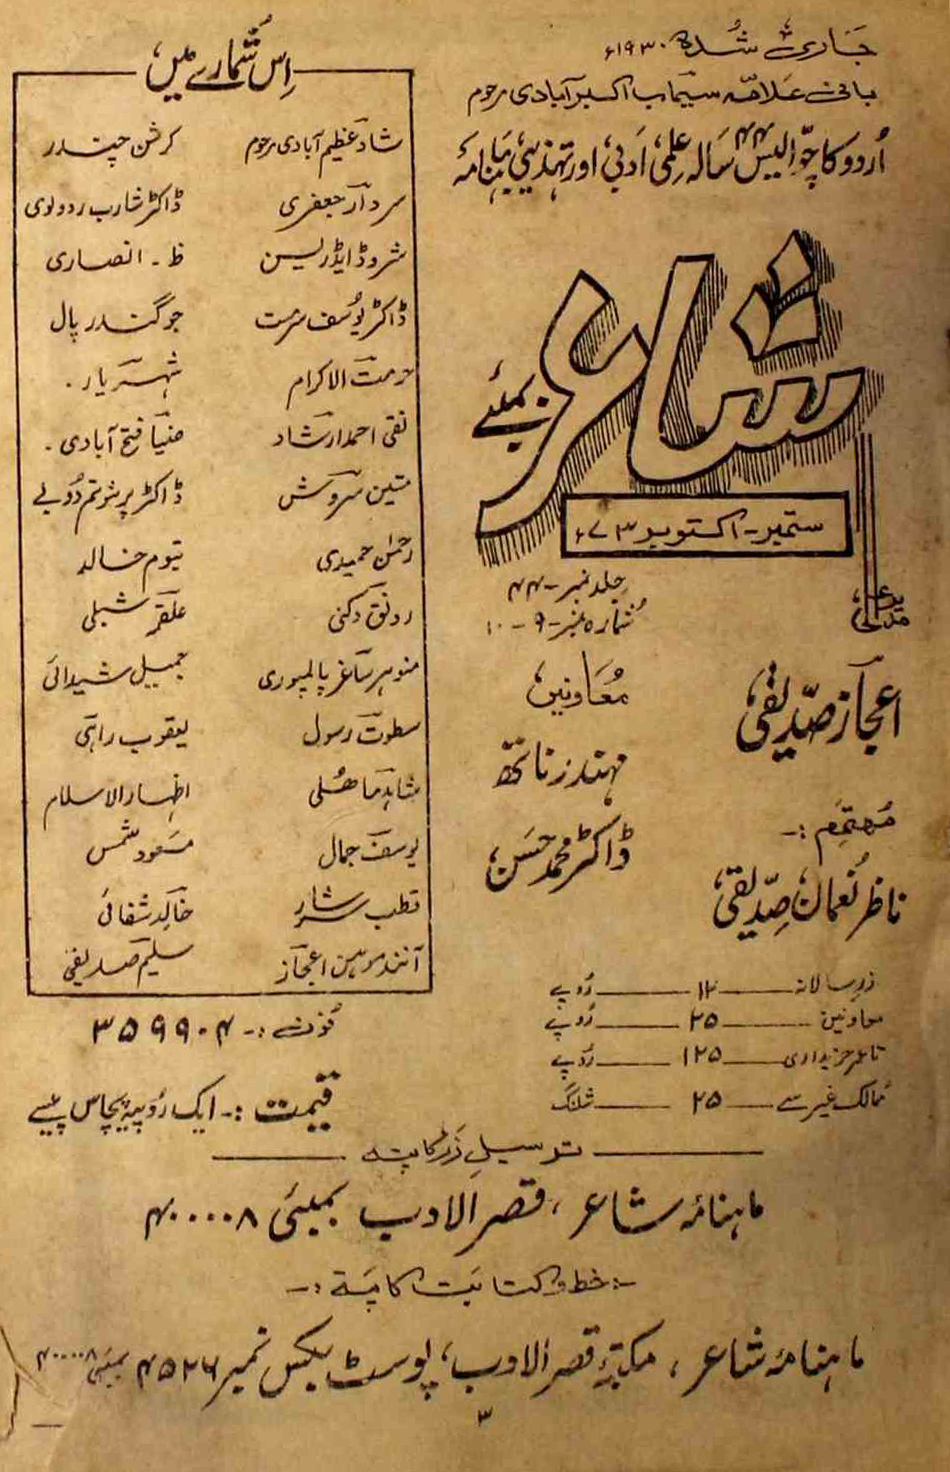 جاری شدہ ۱۹۳۰ء
بانی علامہ سیماب اکبرآبادی مرحوم
اُردو کا چوّالیس ۴۴ سالہ علمی، ادبی، اور تہذیبی ماہنامہ
شاعر
بمبئی
ستمبر - اکتوبر ۷۳ء
جلد نمبر - ۴۴
شمارہ نمبر - ۹ - ۱۰
مدیرِ اعلیٰ
اعجاز صدیقی
مُہتمم :-
ناظر نعمان صدیقی
معاونین
مہندر ناتھ
ڈاکٹر محمد حسن
زرِ سالانہ — ۱۲ — رُوپے
معاونین — ۲۵ — رُوپے
تاعمر خریداری — ۱۲۵ — رُوپے
ممالک غیر سے — ۲۵ — شلنگ
اِس شمارے میں
شاد عظیم آبادی مرحوم کرشن چندر
سردار جعفری ڈاکٹر شارب ردولوی
شروڈ اینڈرسن ظ - انصاری
ڈاکٹر یُوسف سرمست جوگندر پال
حرمت الاکرام شہریار -
نقی احمد ارشاد ضیا فتح آبادی -
متین سروش ڈاکٹر پرشوتم دُوبے
رحمٰن حمیدی قیوم خالد
رونق دکنی علقمہ شبلی
منوہر ساغر پالمپوری جمیل شیدائی
سطوت رسول یعقوب راہی
شاہد ماھُلی اظہار الاسلام
یوسف جمال مسعود شمس
قطب سرشار خالد شفائی
آنند موہن اعجاز سلیم صدیقی
فون :- ۳۵۹۹۰۴
قیمت :- ایک رُوپیہ پچاس پیسے
ترسیلِ زر کا پتہ
ماہنامہ شاعر، قصر الادب بمبئی ۴۰۰۰۰۸
-: خط و کتابت کا پتہ :-
ماہنامہ شاعر، مکتبہ قصر الادب، پوسٹ بکس نمبر ۴۵۲۶ بمبئی ۴۰۰۰۰۸
۳